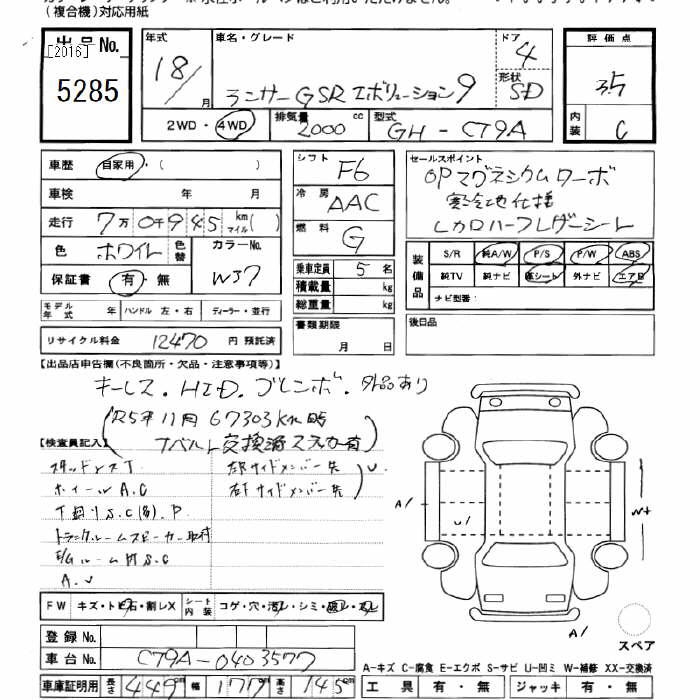 (複合機)対応用紙
出品No. [2016] 5285
年式 18/月
車名・グレード ランサーGSR エボリューション9
ドア 4
形状 SD
評価点 3.5
内装 C
2WD・4WD
排気量 2000 cc
型式 GH-CT9A
車歴 自家用・( )
車検 年 月
走行 7万0千945 km マイル( )
色 ホワイト 色替 カラーNo. W37
保証書 有・無
シフト F6
冷房 AAC
燃料 G
乗車定員 5 名
積載量 kg
総重量 kg
書類期限 月 日
セールスポイント
OPマグネシウムターボ
寒冷地仕様
レカロハーフレザーシート
装備品 S/R 純A/W P/S P/W ABS
純TV 純ナビ 革シート 外ナビ エアB
ナビ型番:
後日品
モデル年式 年 ハンドル 左・右 ディーラー・並行
リサイクル料金 12470 円 預託済
【出品店申告欄(不良箇所・欠品・注意事項等)】
キーレス.HID.ブレンボ.外品あり
(R5年11月 67303km時
【検査員記入】
ホイールA.C
下廻りS.C(多).P
トランクルームスピーカー取付
A.U
A/
U/
W+
A/
FW キズ・トビ石・割レX シート内装 コゲ・穴・汚レ・シミ・破レ・スレ
登録No.
車台No. CT9A-0403577
スペア
A-キズ C-腐食 E-エクボ S-サビ U-凹ミ W-補修 XX-交換済
車庫証明用 長さ 449cm 幅 177cm 高さ 145cm
工具 有・無 ジャッキ 有・無